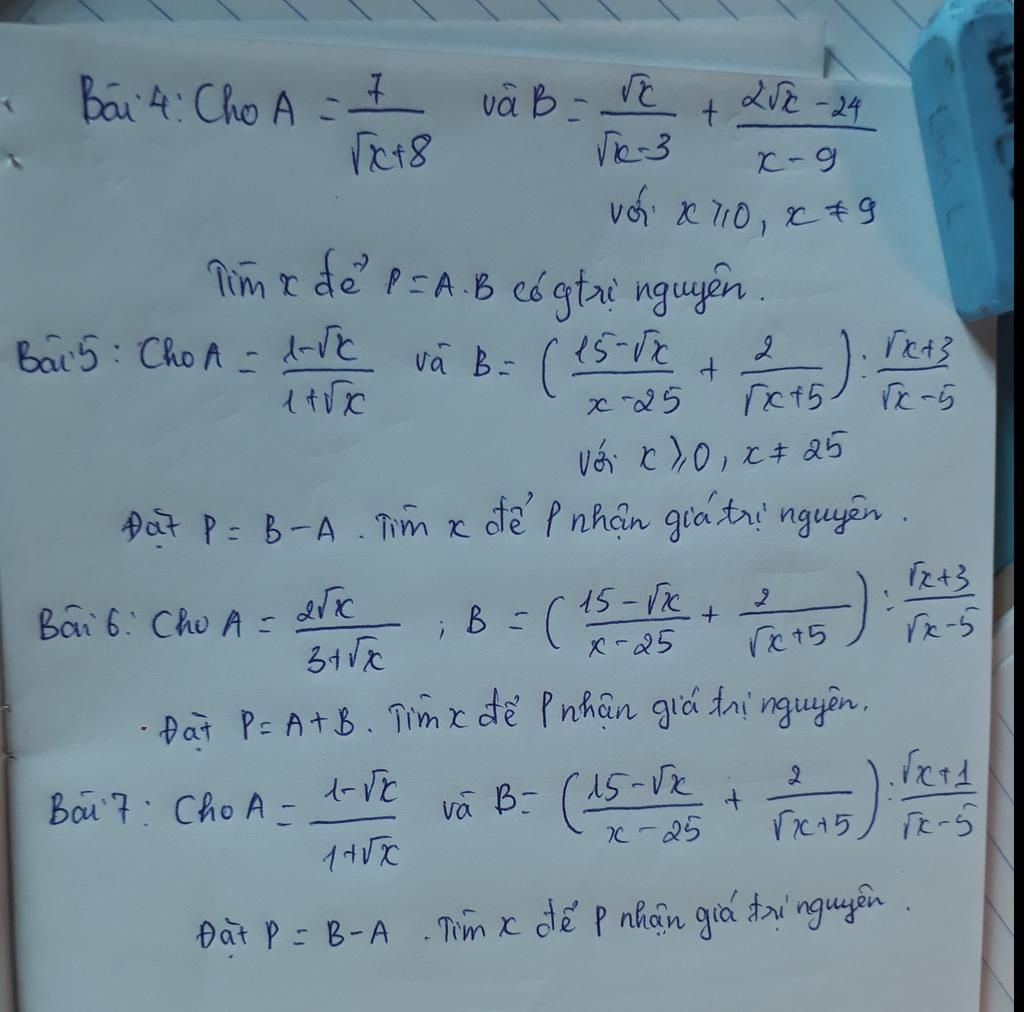 Bài 4: Cho A = 7/(√x+8) và B = √x/(√x-3) + (2√x-24)/(x-9)
với x ⩾ 0, x ≠ 9
Tìm x để P = A.B có gtrị nguyên.
Bài 5: Cho A = (1-√x)/(1+√x) và B = ((15-√x)/(x-25) + 2/(√x+5)) : (√x+3)/(√x-5)
với x ⩾ 0, x ≠ 25
Đặt P = B - A. Tìm x để P nhận giá trị nguyên.
Bài 6: Cho A = 2√x/(3+√x); B = ((15-√x)/(x-25) + 2/(√x+5)) : (√x+3)/(√x-5)
Đặt P = A + B. Tìm x để P nhận giá trị nguyên.
Bài 7: Cho A = (1-√x)/(1+√x) và B = ((15-√x)/(x-25) + 2/(√x+5)) : (√x+1)/(√x-5)
Đặt P = B - A. Tìm x để P nhận giá trị nguyên.